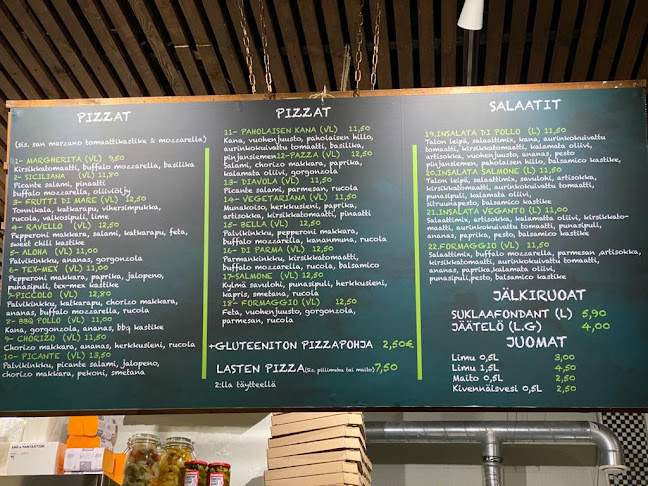 PIZZAT
(sis. san marzano tomaattikastike & mozzarella)
1- MARGHERITA (VL) 9,50
Kirsikkatomaatti, buffalo mozzarella, basilika
2- SICILIANA (VL) 11,50
Picante salami, pinaatti
buffalo mozzarella, oliiviöljy
3- FRUTTI DI MARE (VL) 12,50
Tonnikala, katkarapu, vihersimpukka,
rucola, valkosipuli, lime
4- RAVELLO (VL) 12,50
Pepperoni makkara, salami, katkarapu, feta,
sweet chili kastike
5- ALOHA (VL) 11,00
Palvikinkku, ananas, gorgonzola
6- TEX-MEX (VL) 11,00
Pepperoni makkara, paprika, jalopeno,
punasipuli, tex-mex kastike
7-PICCOLO (VL) 12,80
Palvikinkku, katkarapu, chorizo makkara,
ananas, buffalo mozzarella, rucola
8- BBQ POLLO (VL) 11,00
Kana, gorgonzola, ananas, bbq kastike
9- CHORIZO (VL) 11,50
Chorizo makkara, ananas, herkkusieni, rucola
10- PICANTE (VL) 13,50
Palvikinkku, picante salami, jalopeno,
chorizo makkara, pekoni, smetana
PIZZAT
11- PAHOLAISEN KANA (VL) 11,50
Kana, vuohenjuusto, paholaisen hillo,
aurinkokuivattu tomaatti, basilika,
pinjansiemen12-PAZZA (VL) 12,50
Salami, chorizo makkara, paprika,
kalamata oliivi, gorgonzola
13- DIAVOLA (VL) 11,50
Picante salami, parmesan, rucola
14- VEGETARIANA (VL) 11,50
Munakoiso, herkkusieni, paprika,
artisokka, kirsikkatomaatti, pinaatti
15- BELLA (VL) 12,50
Palvikinkku, pepperoni makkara,
buffalo mozzarella, kananmuna, rucola
16- DI PARMA (VL) 12,50
Parmankinkku, kirsikkatomaatti,
buffalo mozzarella, rucola, balsamico
17-SALMONE (VL) 12,50
Kylmä savulohi, punasipuli, herkkusieni,
kapris, smetana, rucola
18- FORMAGGIO (VL) 12,50
Feta, vuohenjuusto, gorgonzola,
parmesan, rucola
+GLUTEENITON PIZZAPOHJA 2,50€
LASTEN PIZZA(sis. pillimehu tai maito)7,50
2:lla täytteellä
SALAATIT
19.INSALATA DI POLLO (L) 11,50
Talon leipä, salaattimix, kana, aurinkokuivattu
tomaatti, kirsikkatomaatti, kalamata oliivi,
artisokka, vuohenjuusto, ananas, pesto
pinjansiemen, paholaisen hillo, balsamico kastike,
20.INSALATA SALMONE (L) 11,50
Talon leipä, salaattimix, savulohi, artisokka,
kirsikkatomaatti, aurinkokuivattu tomaatti,
punasipuli, kalamata oliivi,
sitruunapesto, balsamico kastike
21.INSALATA VEGANTO (L) 11,00
Salaattimix, artisokka, kalamata oliivi, kirsikkato-
maatti, aurinkokuivattu tomaatti, punasipuli,
ananas, paprika, pesto, balsamico kastike
22.FORMAGGIO (L) 11,50
Salaattimix, buffalo mozzarella, parmesan ,artisokka,
kirsikkatomaatti, aurinkokuivattu tomaatti,
ananas, paprika,kalamata oliivi,
punasipuli,pesto, balsamico kastike
JÄLKIRUOAT
SUKLAAFONDANT (L) 5,90
JÄÄTELÖ (L.G) 4,00
JUOMAT
Limu 0,5L 3,00
Limu 1,5L 4,50
Maito 0,5L 2,50
Kivennäisvesi 0,5L 2,50